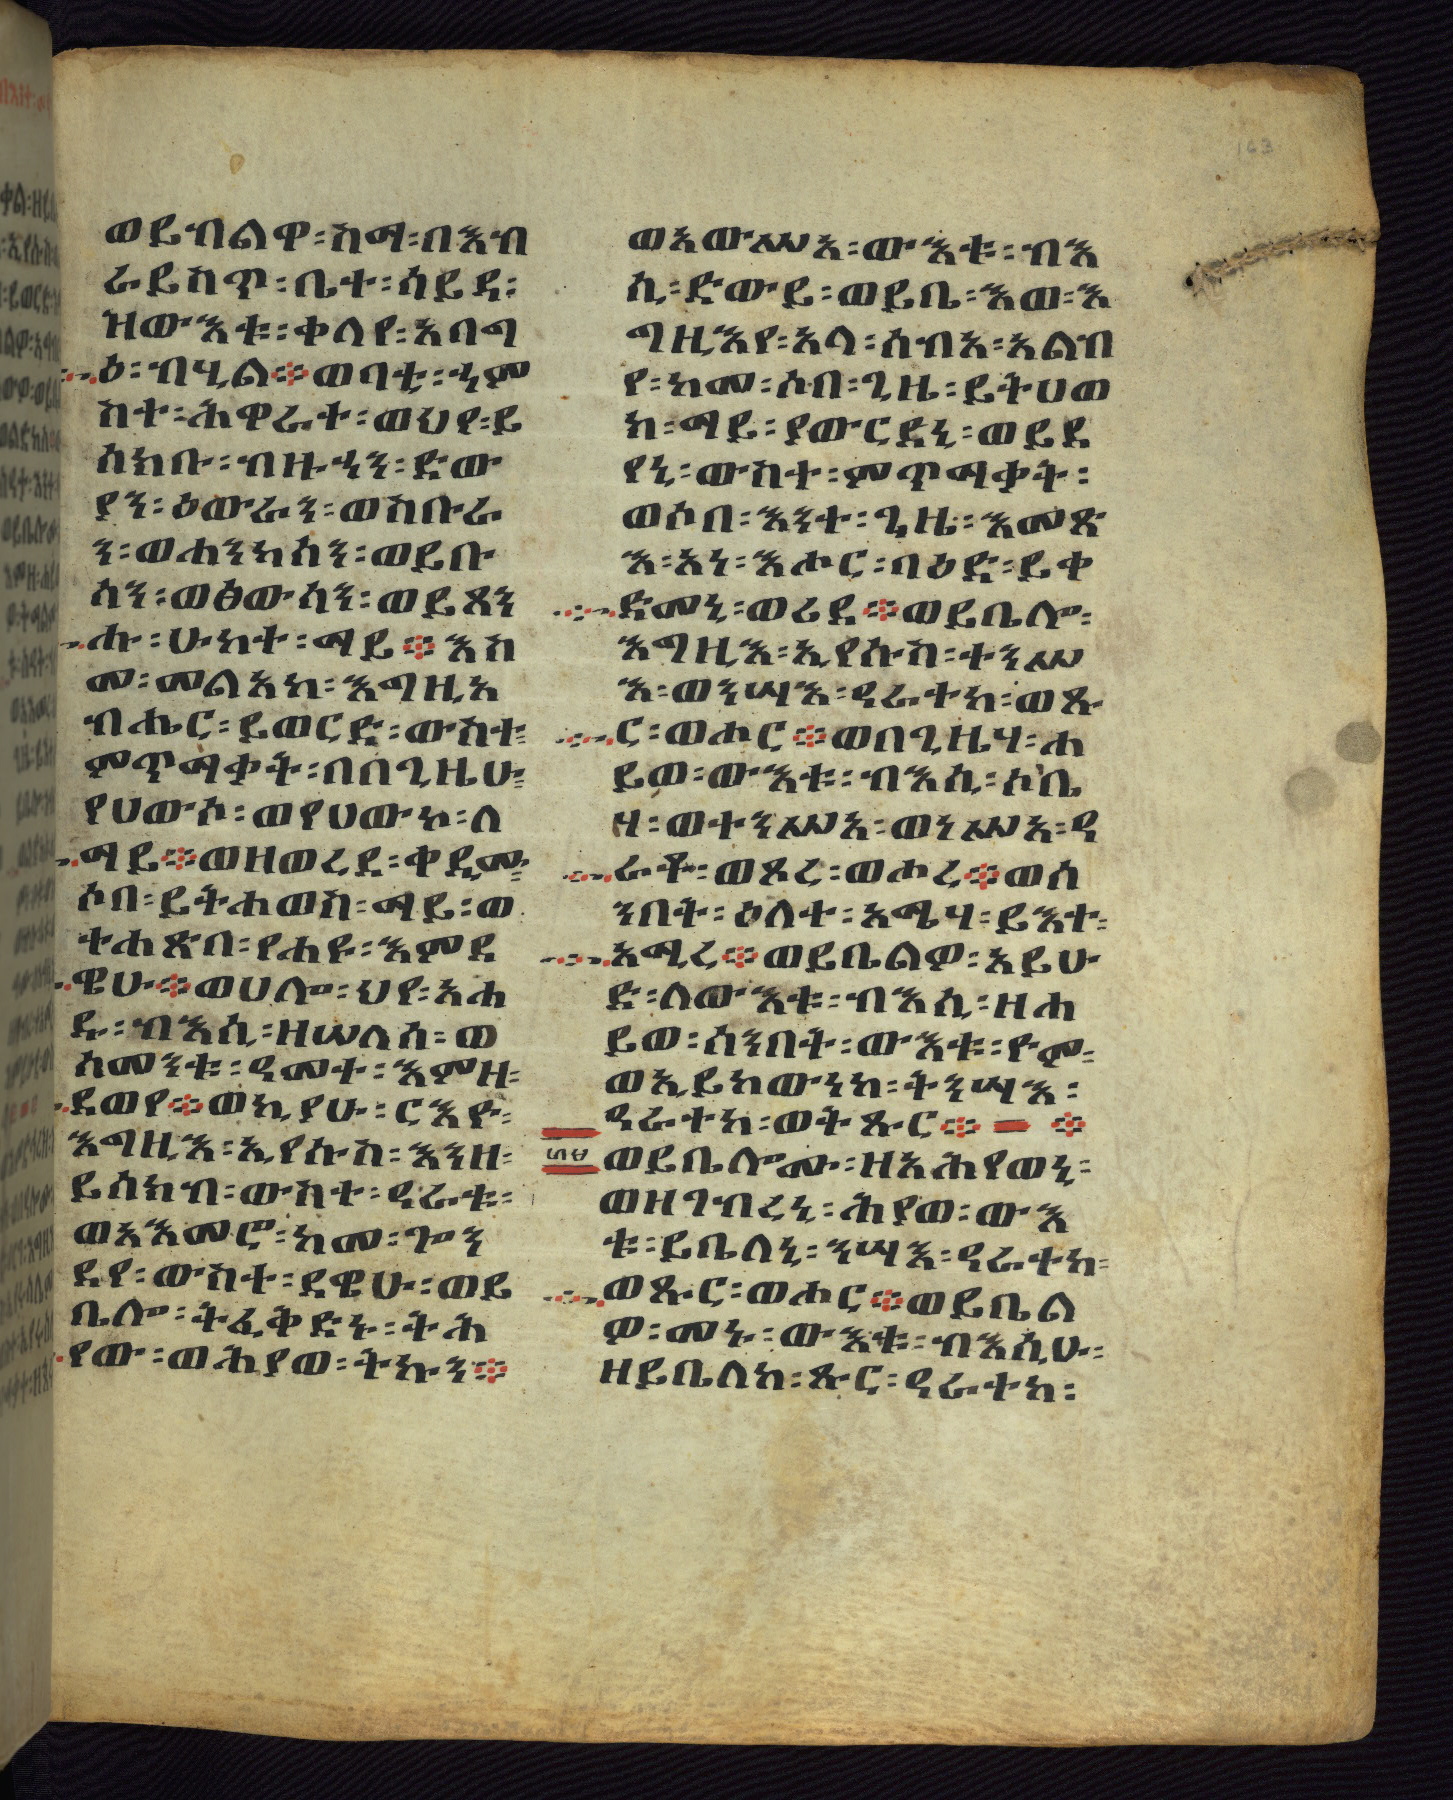 ወይብልዋ፡ስማ፡በእብ
ራይስጥ፡ቤተ፡ሳይዳ፡
ዝውእቱ፡ቀላየ፡አባግ
ዕ፡ብሂል፨ወባቲ፡ኀም
ስተ፡ሕዋራተ፡ወህየ፡ይ
ሰክቡ፡ብዙኀን፡ድው
ያን፡ዕውራን፡ወስቡራ
ን፡ወሐንካሳን፡ወይቡ
ሳን፡ወፅውሳን፡ወይጸን
ሑ፡ሁከተ፡ማይ፨እስ
መ፡መልአከ፡እግዚአ
ብሔር፡ይወርድ፡ውስተ፡
ምጥማቃት፡በበጊዜሁ፡
የሀውኮ፡ወየሀውኮ፡ለ
ማይ፨ወዘወረደ፡ቀዲሙ፡
ሶበ፡ይትሐወስ፡ማይ፡ወ
ተሐጽበ፡የሐዩ፡እምደ
ዌሁ፨ወሀሎ፡ህየ፡አሐ
ዱ፡ብእሲ፡ዘሠላሳ፡ወ
ሰመንቱ፡ዓመተ፡እምዘ፡
ደወየ፨ወኪያሁ፡ርእዮ፡
እግዚእ፡ኢየሱስ፡እንዘ፡
ይሰክብ፡ውስተ፡ዓራቱ፡
ወአእመሮ፡ከመ፡ጐን
ደየ፡ውስተ፡ደዌሁ፡ወይ
ቤሎ፡ትፈቅድኑ፡ትሕ
የው፡ወሕያወ፡ትኩን፨
ወአውሥአ፡ውእቱ፡ብእ
ሲ፡ድውይ፡ወይቤ፡እወ፡እ
ግዚእየ፡አላ፡ሰብአ፡አልብ
የ፡ከመ፡ሶበ፡ጊዜ፡ይትሀወ
ክ፡ማይ፡ያውርዱኒ፡ወይደ
ዩኒ፡ውስተ፡ምጥማቃት፡
ወሶበ፡እንተ፡ጊዜ፡እመጽ
እ፡አነ፡እሖር፡ባዕድ፡ይቀ
ድመኒ፡ወረደ፨ወይቤሎ፡
እግዚእ፡ኢየሱስ፡ተንሥ
እ፡ወንሣእ፡ዓራተከ፡ወጹ
ር፡ወሖር፨ወበጊዜሃ፡ሐ
ይወ፡ውእቱ፡ብእሲ፡ሶቤ
ሃ፡ወተንሥአ፡ወነሥአ፡ዓ
ራቶ፡ወጾረ፡ወሖረ፨ወሰ
ንበት፡ዕለተ፡አሜሃ፡ይእተ፡
አሚረ፨ወይቤልዎ፡አይሁ
ድ፡ለውእቱ፡ብእሲ፡ዘሐ
ይወ፡ሰንበት፡ውእቱ፡ዮም፡
ወኢይከውነከ፡ትንሣእ፡
ዓራተከ፡ወትጹር፨ ፨
ወይቤሎሙ፡ዘአሕየወኒ፡
ወዘገብረኒ፡ሕያወ፡ውእ
ቱ፡ይቤለኒ፡ንሣእ፡ዓራተከ፡
ወጹር፡ወሖር፨ወይቤል
ዎ፡መኑ፡ውእቱ፡ብእሲሁ፡
ዘይቤለከ፡ጹር፡ዓራተከ፡